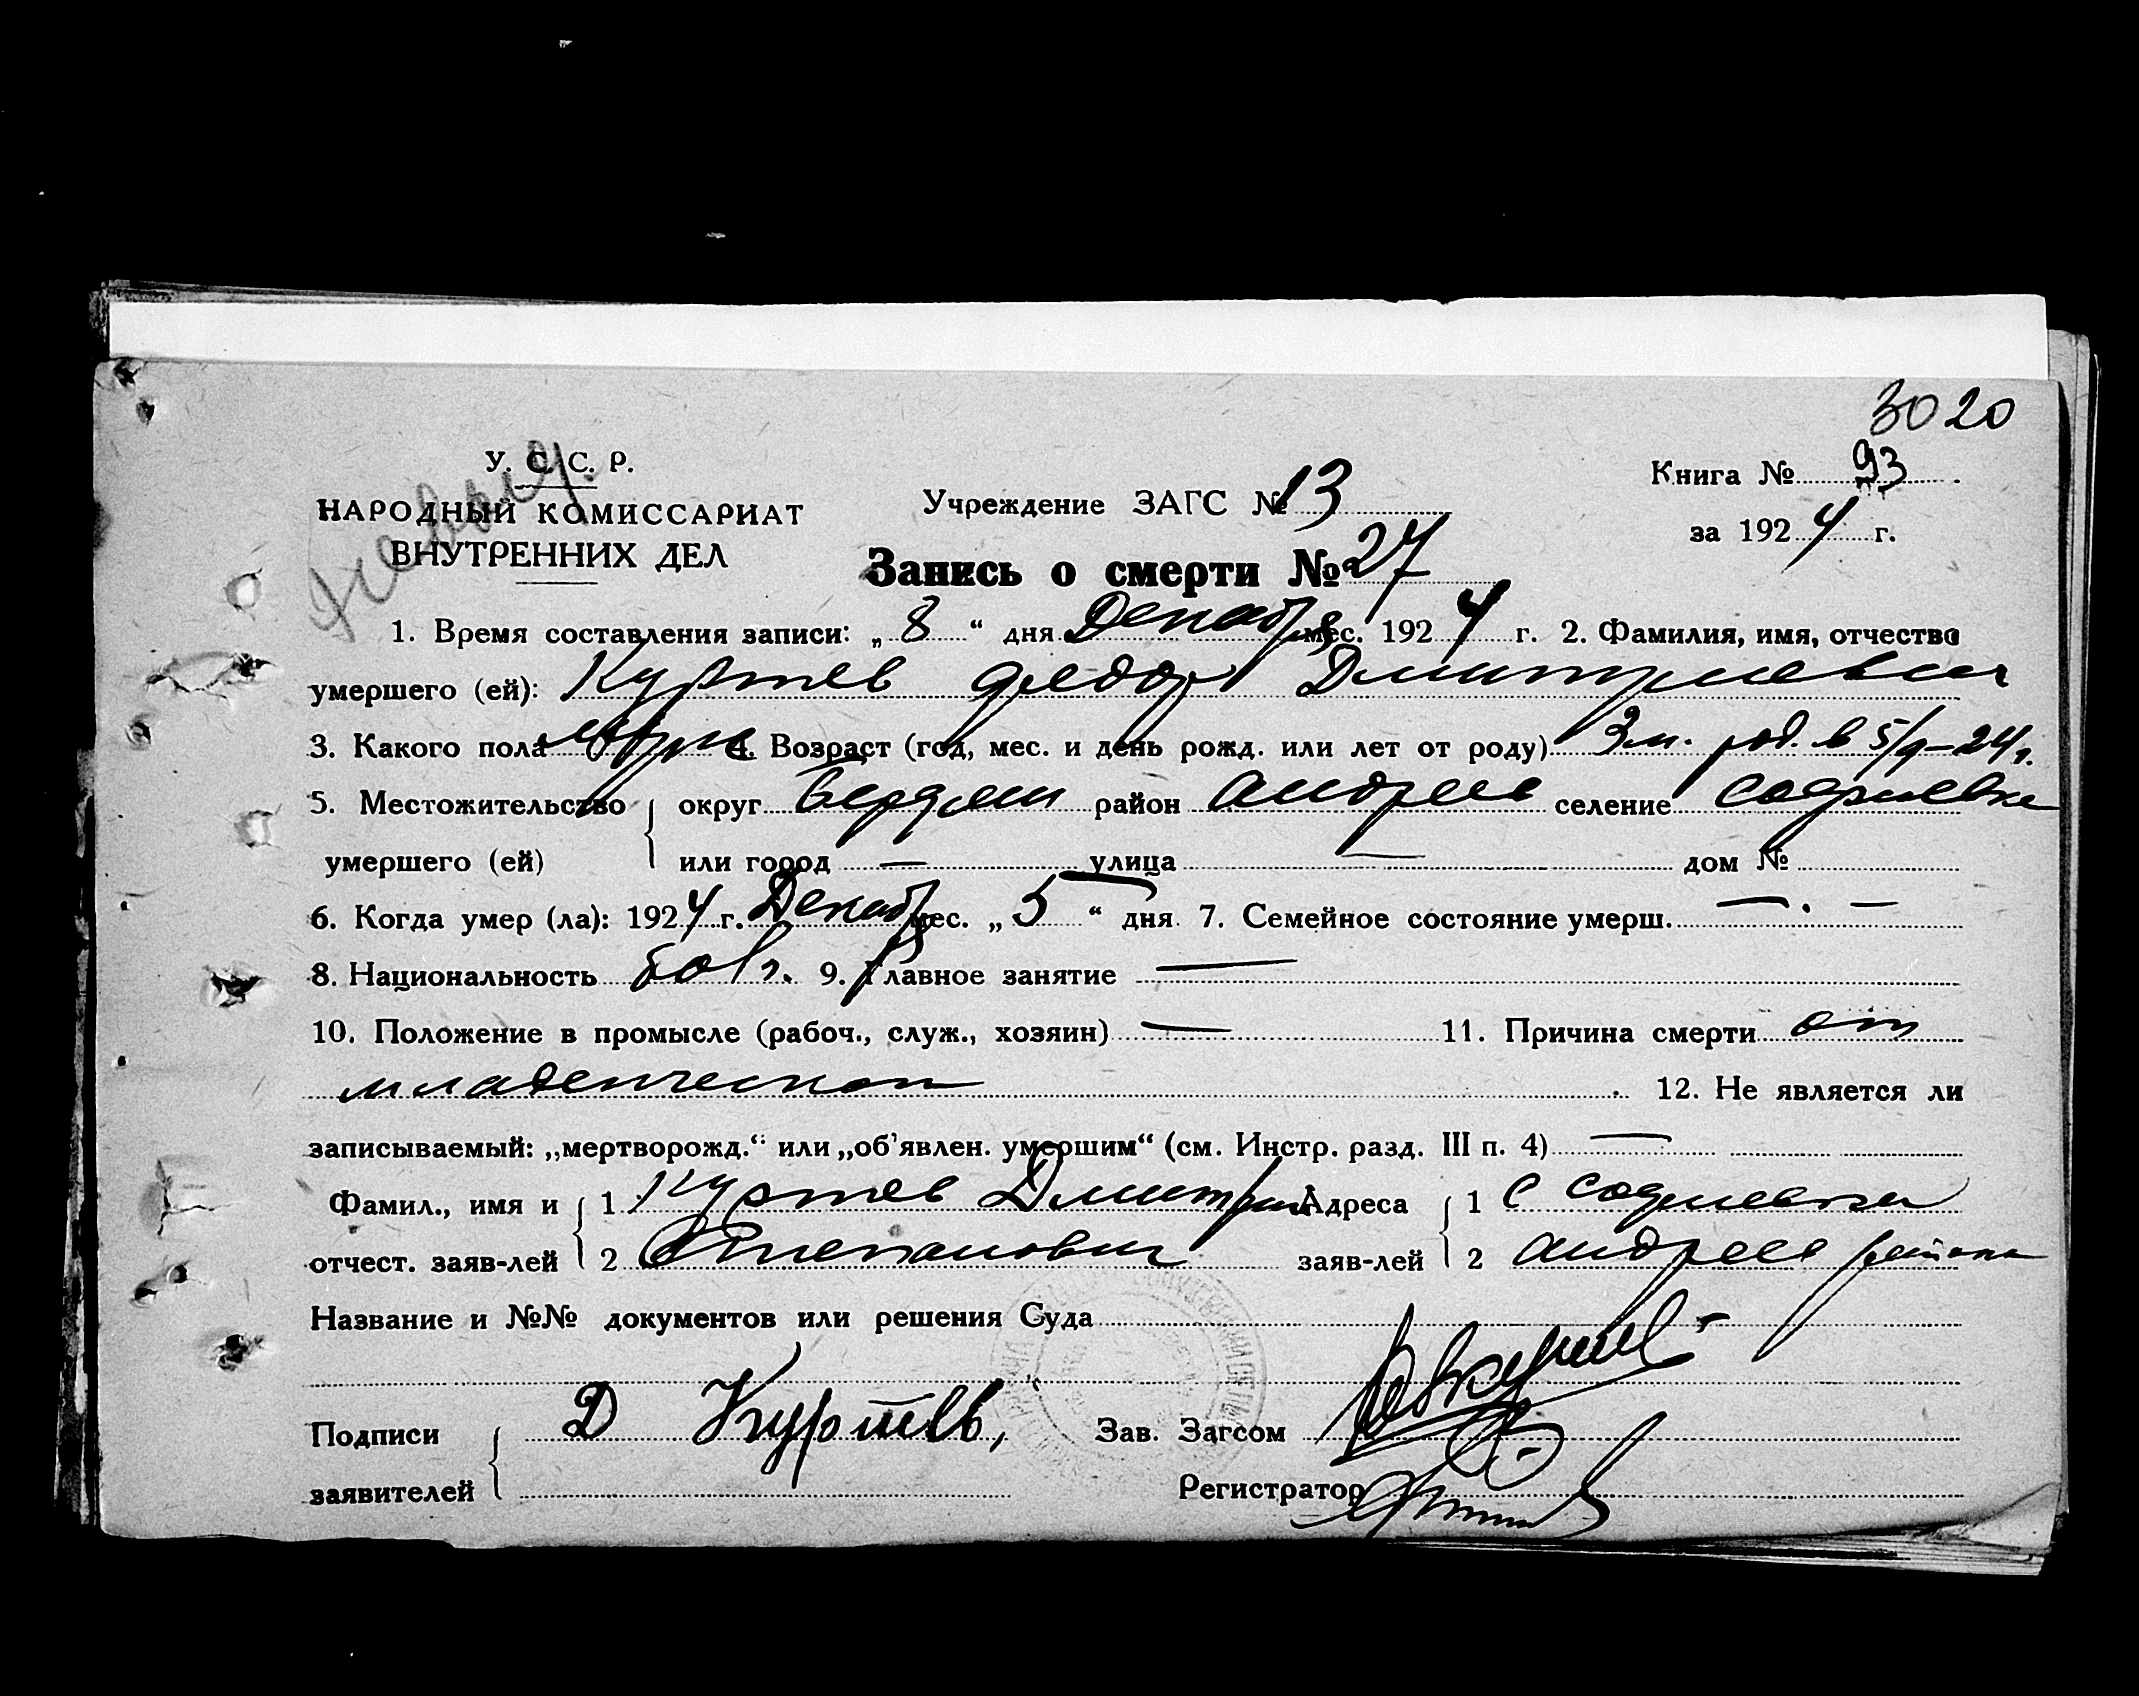 3020
У. С. С. Р.
НАРОДНЫЙ КОМИССАРИАТ
ВНУТРЕННИХ ДЕЛ
Учреждение ЗАГС № 13
Книга № 93
за 1924 г.
Запись о смерти № 27
1. Время составления записи: „8“ дня Декабря мес. 1924 г. 2. Фамилия, имя, отчество
умершего (ей): Куртев Федор Дмитриевич
3. Какого пола мужс 4. Возраст (год, мес. и день рожд. или лет от роду) 3 м. род. в 5/9-24 г.
5. Местожительство округ Бердян район Андреев селение Софиевка
умершего (ей) или город — улица — дом №
6. Когда умер (ла): 1924 г. Декабр мес. „5“ дня 7. Семейное состояние умерш. — . —
8. Национальность болг. 9. Главное занятие —
10. Положение в промысле (рабоч., служ., хозяин) — 11. Причина смерти от
младенческой 12. Не является ли
записываемый: „мертворожд.“ или „об'явлен. умершим“ (см. Инстр. разд. III п. 4) —
Фамил., имя и 1 Куртев Дмитрий Адреса 1 с Софиевка
отчест. заяв-лей 2 Степанович заяв-лей 2 Андреев района
Название и №№ документов или решения Суда
Подписи Д Куртев, Зав. Загсом
заявителей Регистратор